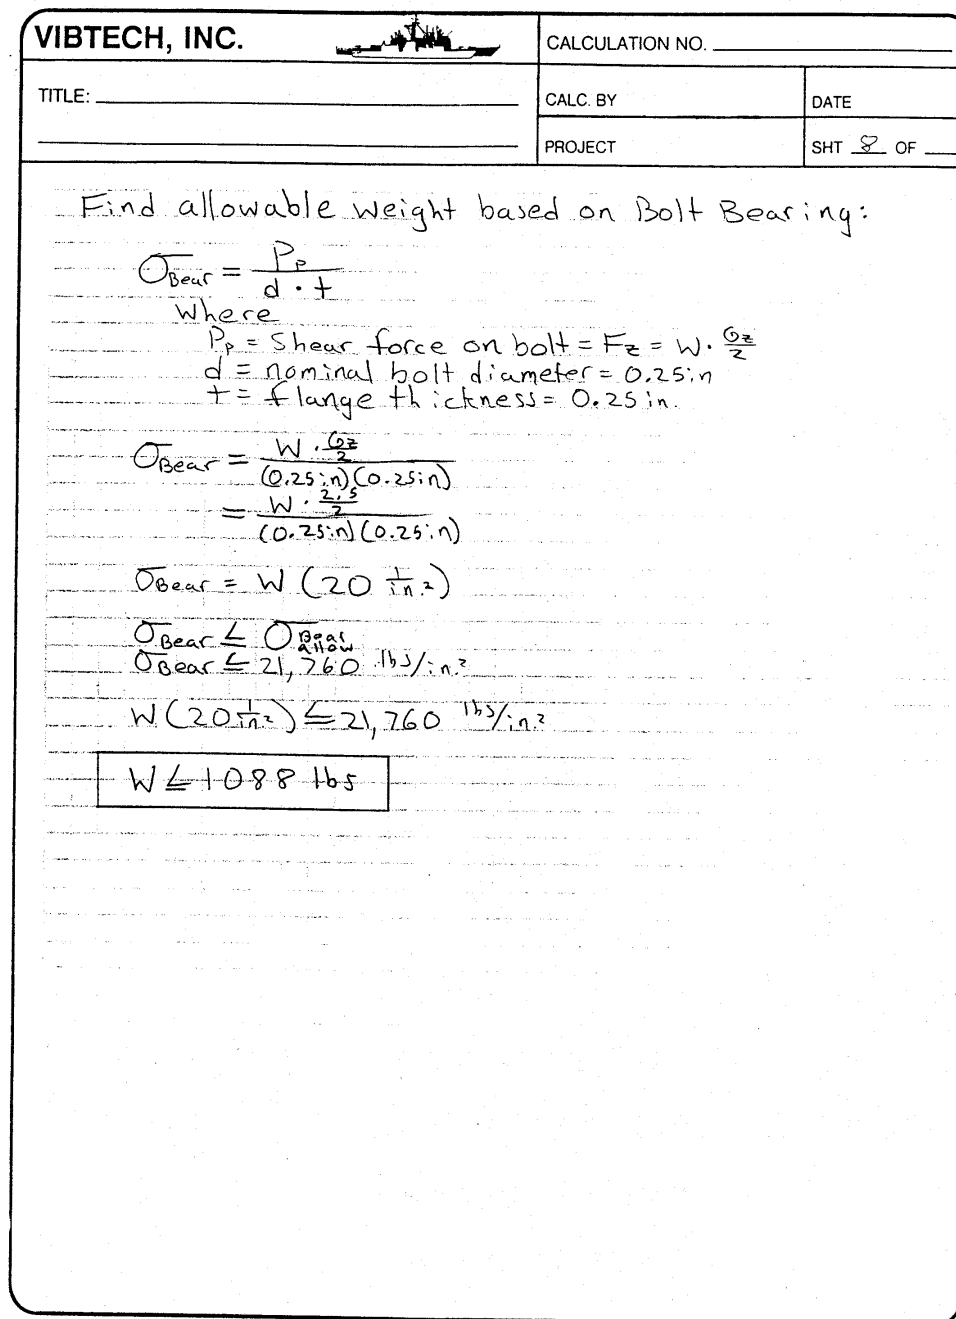 VIBTECH, INC.
CALCULATION NO.
TITLE:
CALC. BY
DATE
PROJECT
SHT 8 OF
Find allowable weight based on Bolt Bearing:
σBear = Pp / d · t
Where
Pp = Shear force on bolt = Fz = W · Gz/2
d = nominal bolt diameter = 0.25in
t = flange thickness = 0.25 in.
σBear = W · Gz/2 / (0.25in)(0.25in)
= W · 2.5/2 / (0.25in)(0.25in)
σBear = W (20 1/in.²)
σBear ≤ σBear allow
σBear ≤ 21,760 lbs/in.²
W(20 1/in²) ≤ 21,760 lbs/in.²
W ≤ 1088 lbs